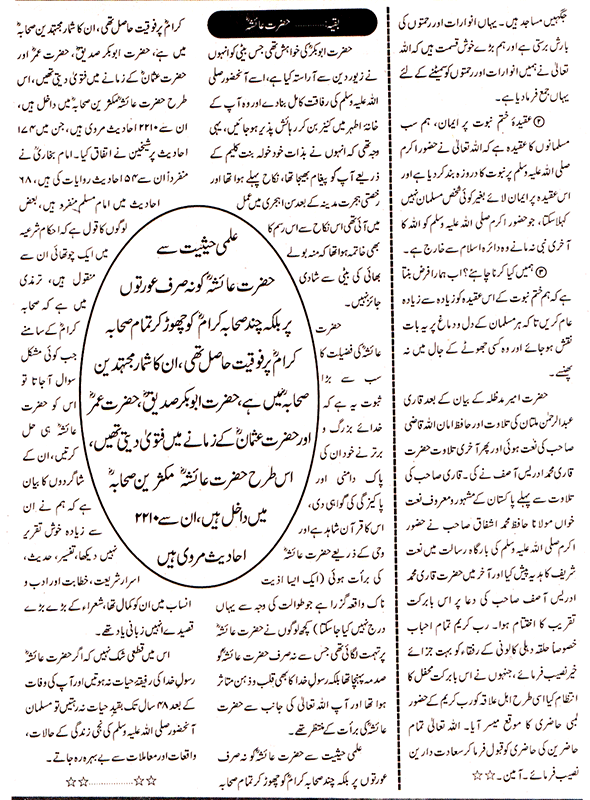 جگہیں مساجد ہیں۔ یہاں انوارات اور رحمتوں کی
بارش برستی ہے اور ہم بڑے خوش قسمت ہیں کہ اللہ
تعالیٰ نے ہمیں انوارات اور رحمتوں کو سمیٹنے کے لئے
یہاں جمع فرمادیا ہے۔
② عقیدۂ ختم نبوت پر ایمان، ہم سب
مسلمانوں کا عقیدہ ہے کہ اللہ تعالیٰ نے حضور اکرم
صلی اللہ علیہ وسلم پر نبوت کا دروازہ بند کردیا ہے اور
اس عقیدہ پر ایمان لائے بغیر کوئی شخص مسلمان نہیں
کہلا سکتا، جو حضور اکرم صلی اللہ علیہ وسلم کو اللہ کا
آخری نبی نہ مانے وہ دائرہ اسلام سے خارج ہے۔
③ ہمیں کیا کرنا چاہئے؟ اب ہمارا فرض بنتا
ہے کہ ہم ختم نبوت کے اس عقیدہ کو زیادہ سے زیادہ
عام کریں تاکہ ہر مسلمان کے دل و دماغ پر یہ بات
نقش ہوجائے اور وہ کسی جھوٹے کے جال میں نہ
پھنسے۔
حضرت امیر مدظلہ کے بیان کے بعد قاری
عبدالرحمٰن ملتان کی تلاوت اور حافظ امان اللہ قاضی
صاحب کی نعت ہوئی اور پھر آخری تلاوت حضرت
قاری محمد ادریس آصف نے کی۔ قاری صاحب کی
تلاوت سے پہلے پاکستان کے مشہور و معروف نعت
خواں مولانا حافظ محمد اشفاق صاحب نے حضور
اکرم صلی اللہ علیہ وسلم کی بارگاہ رسالت میں نعت
شریف کا ہدیہ پیش کیا اور آخر میں حضرت قاری محمد
ادریس آصف صاحب کی دعا پر اس بابرکت
تقریب کا اختتام ہوا۔ رب کریم تمام احباب
خصوصاً حلقہ دہلی کالونی کے رفقاء کو بہت جزائے
خیر نصیب فرمائے، جنہوں نے اس بابرکت محفل کا
انتظام کیا اسی طرح اہل علاقہ کو رب کریم کے حضور
لمبی حاضری کا موقع میسر آیا۔ اللہ تعالیٰ تمام
حاضرین کی حاضری کو قبول فرما کر سعادت دارین
نصیب فرمائے۔ آمین۔ ☆☆
بقیہ: ......... حضرت عائشہؓ
حضرت ابوبکرؓ کی خواہش تھی جس بیٹی کو انہوں
نے زیور دین سے آراستہ کیا ہے، اسے آنحضور صلی
اللہ علیہ وسلم کی رفاقت کامل بنادے اور وہ آپ کے
خانۂ اطہر میں کنیز بن کر رہائش پذیر ہوجائیں، یہی
وجہ تھی کہ انہوں نے بذات خود خولہ بنت حکیم کے
ذریعے آپ کو پیغام بھیجا تھا، نکاح پہلے ہوا تھا اور
رخصتی ہجرت مدینہ کے بعد سن ۱ہجری میں عمل
میں آئی تھی اس نکاح سے اس رسم کا
بھی خاتمہ ہوا تھا کہ منہ بولے
بھائی کی بیٹی سے شادی
جائز نہیں۔
حضرت
عائشہؓ کی فضیلت کا
سب سے بڑا
ثبوت یہ ہے کہ
خدائے بزرگ و
برتر نے خود ان کی
پاک دامنی اور
پاکیزگی کی گواہی دی،
اس کا قرآن شاہد ہے اور
وحی کے ذریعے حضرت عائشہؓ
کی برأت ہوئی (ایک ایسا اذیت
ناک واقعہ گزرا ہے جو طوالت کی وجہ سے یہاں
درج نہیں کیا جاسکتا) کچھ لوگوں نے حضرت عائشہؓ
پر تہمت لگائی تھی جس سے نہ صرف حضرت عائشہؓ کو
صدمہ پہنچا تھا بلکہ رسول خدا کا بھی قلب و ذہن متاثر
ہوا تھا اور آپ اللہ تعالیٰ کی جانب سے حضرت
عائشہؓ کی برأت کے منتظر تھے۔
علمی حیثیت سے حضرت عائشہؓ کو نہ صرف
عورتوں پر بلکہ چند صحابہ کرامؓ کو چھوڑ کر تمام صحابہ
علمی حیثیت سے
حضرت عائشہؓ کو نہ صرف عورتوں
پر بلکہ چند صحابہ کرامؓ کو چھوڑ کر تمام صحابہ
کرامؓ پر فوقیت حاصل تھی، ان کا شمار مجتہدین
صحابہؓ میں ہے، حضرت ابوبکر صدیقؓ، حضرت عمرؓ
اور حضرت عثمانؓ کے زمانے میں فتویٰ دیتی تھیں،
اس طرح حضرت عائشہؓ مکثرین صحابہؓ
میں داخل ہیں، ان سے ۲۲۱۰
احادیث مروی ہیں
کرامؓ پر فوقیت حاصل تھی، ان کا شمار مجتہدین صحابہؓ
میں ہے، حضرت ابوبکر صدیقؓ، حضرت عمرؓ اور
حضرت عثمانؓ کے زمانے میں فتویٰ دیتی تھیں، اس
طرح حضرت عائشہؓ مکثرین صحابہؓ میں داخل ہیں،
ان سے ۲۲۱۰ احادیث مروی ہیں، جن میں ۱۷۴
احادیث پر شیخین نے اتفاق کیا۔ امام بخاریؒ نے
منفرداً ان سے ۵۴ احادیث روایات کی ہیں، ۶۸
احادیث میں امام مسلم منفرد ہیں، بعض
لوگوں کا قول ہے کہ احکام شرعیہ
میں ایک چوتھائی ان سے
منقول ہیں، ترمذی
میں ہے کہ صحابہ
کرامؓ کے سامنے
جب کوئی مشکل
سوال آجاتا تو
اس کو حضرت
عائشہؓ ہی حل
کرتیں، ان کے
شاگردوں کا بیان
ہے کہ ہم نے ان
سے زیادہ خوش تقریر
نہیں دیکھا، تفسیر، حدیث،
اسرار شریعت، خطابت اور ادب و
انساب میں ان کو کمال تھا، شعراء کے بڑے بڑے
قصیدے انہیں زبانی یاد تھے۔
اس میں قطعی شک نہیں کہ اگر حضرت عائشہؓ
رسول خدا کی رفیقۂ حیات نہ ہوتیں اور آپ کی وفات
کے بعد ۴۸ سال تک بقید حیات نہ رہتیں تو مسلمان
آنحضور صلی اللہ علیہ وسلم کی نجی زندگی کے حالات،
واقعات اور معاملات سے بے بہرہ رہ جاتے۔
☆☆..............☆☆